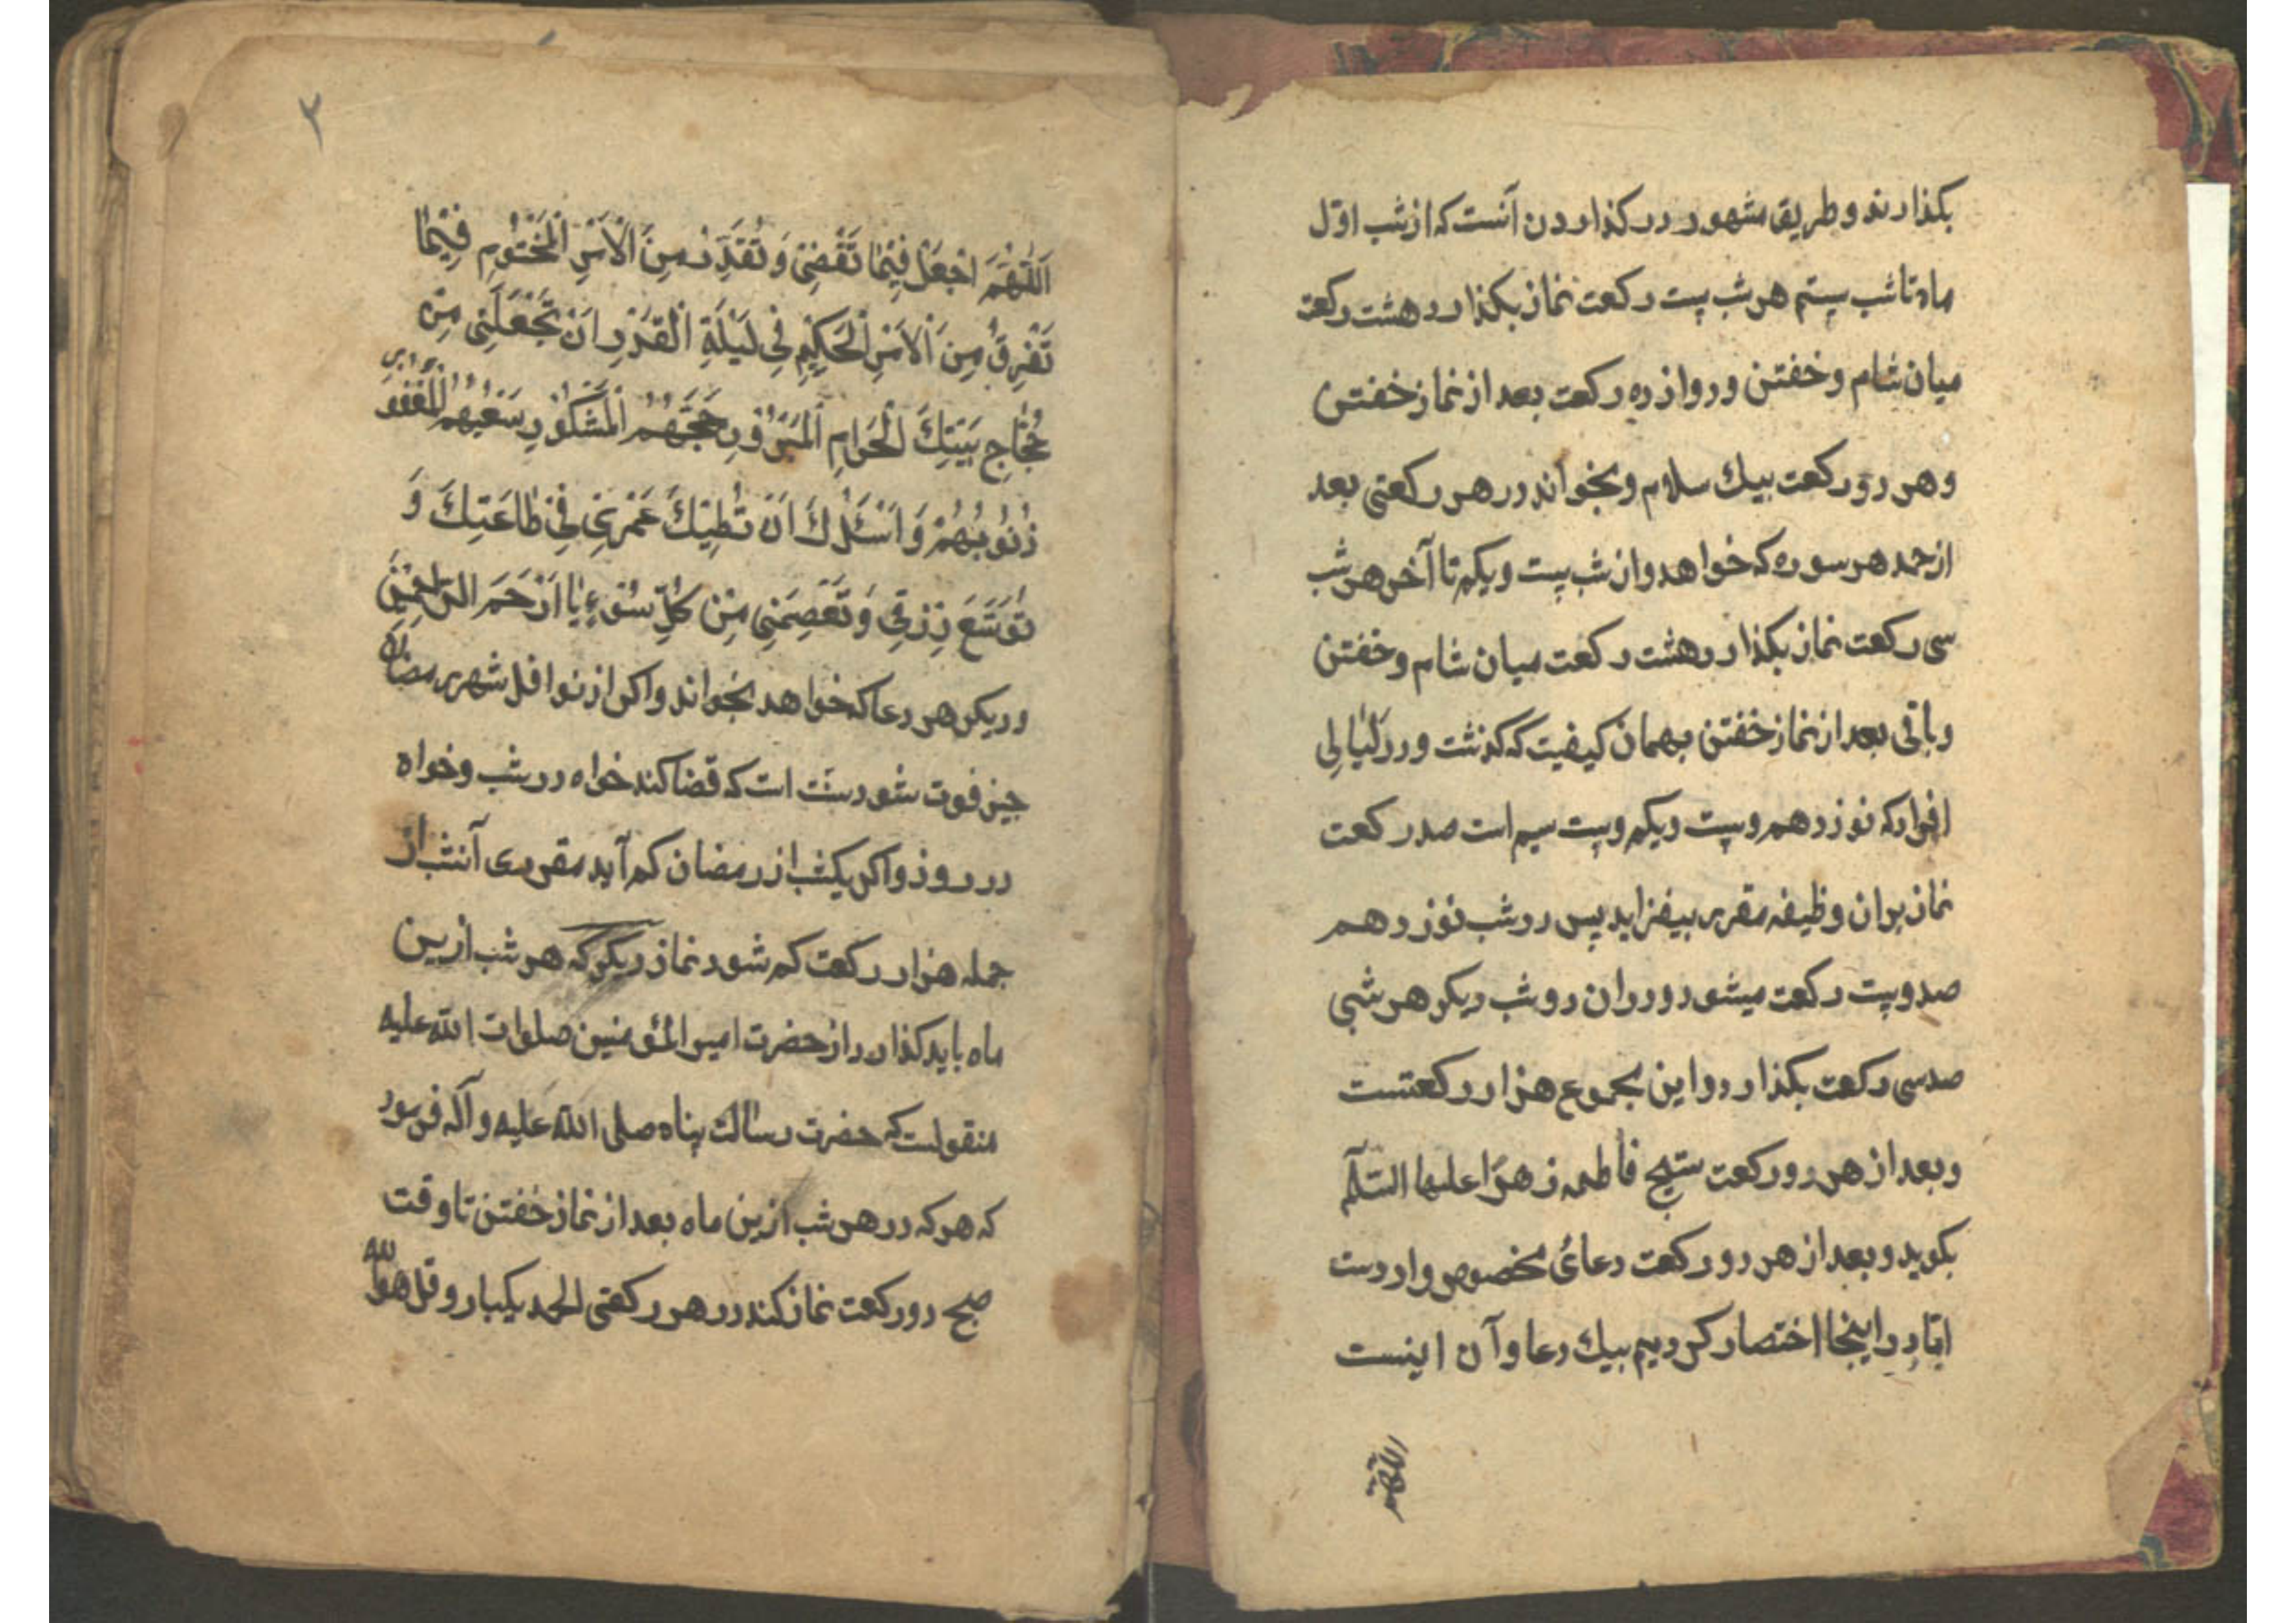 بکذارند و طریق مشهور در کذاردن آنست که از شب اوّل
ماه تا شب بیستم هر شب بیست رکعت نماز بکذارد هشت رکعت
میان شام و خفتن و دوازده رکعت بعد از نماز خفتن
و هر دو رکعت بیك سلام و بخواند در هر رکعتی بعد
از حمد هر سوره که خواهد و از شب بیست و یکم تا آخر هر شب
سی رکعت نماز بکذارد هشت رکعت میان شام و خفتن
و باقی بعد از نماز خفتن بهمان کیفیت که کذشت و در لیالی
افراد که نوزدهم و بیست و یکم و بیست سیم است صد رکعت
نماز بران وظیفه مقرر بیفزاید پس در شب نوزدهم
صد و بیست رکعت میشود و در ان دو شب دیکر هر شبی
صد سی رکعت بکذارد و این مجموع هزار رکعتست
و بعد از هر دو رکعت تسبیح فاطمه زهرا علیها السّلم
بکوید و بعد از هر دو رکعت دعائ مخصوص واردست
امّا در اینجا اختصار کردیم بیك دعا و آن اینست
اللّهمّ
۲
اَللّٰهُمَّ اجْعَلْ فِیْمَا تَقْضِیْ وَ تُقَدِّرُ مِنَ الْاَمْرِ الْمَحْتُوْمِ فِیْمَا
تَفْرِقُ مِنَ الْاَمْرِ الْحَکِیْمِ فِی لَیْلَةِ الْقَدْرِ اَنْ تَجْعَلَنِی مِنْ
حُجَّاجِ بَیْتِكَ الْحَرَامِ الْمَبْرُوْرِ حَجُّهُمْ الْمَشْکُوْرِ سَعْیُهُمْ الْمَغْفُوْرِ
ذُنُوْبُهُمْ وَ اَسْئَلُكَ اَنْ تُطِیْلَ عُمْرِیْ فِیْ طَاعَتِكَ وَ
تُوَسِّعَ رِزْقِی وَ تَعْصِمَنِی مِنْ کُلِّ سُوْءٍ یَا اَرْحَمَ الرَّاحِمِیْنَ
و دیکر هر دعا که خواهد بخواند و اکر از نوافل شهر رمضان
چیز فوت شود سنّت است که قضا کند خواه در شب و خواه
در روز و اکر یکشب از رمضان کم آید مقرری آنشب از
جمله هزار رکعت کم شود نماز دیکر که هر شب ازین
ماه باید کذارد از حضرت امیر المؤمنین صلوات الله علیه
منقولست که حضرت رسالت پناه صلی الله علیه و آله فرمود
که هر که در هر شب ازین ماه بعد از نماز خفتن تا وقت
صبح دو رکعت نماز کند در هر رکعتی الحمد یکبار و قل هو الله